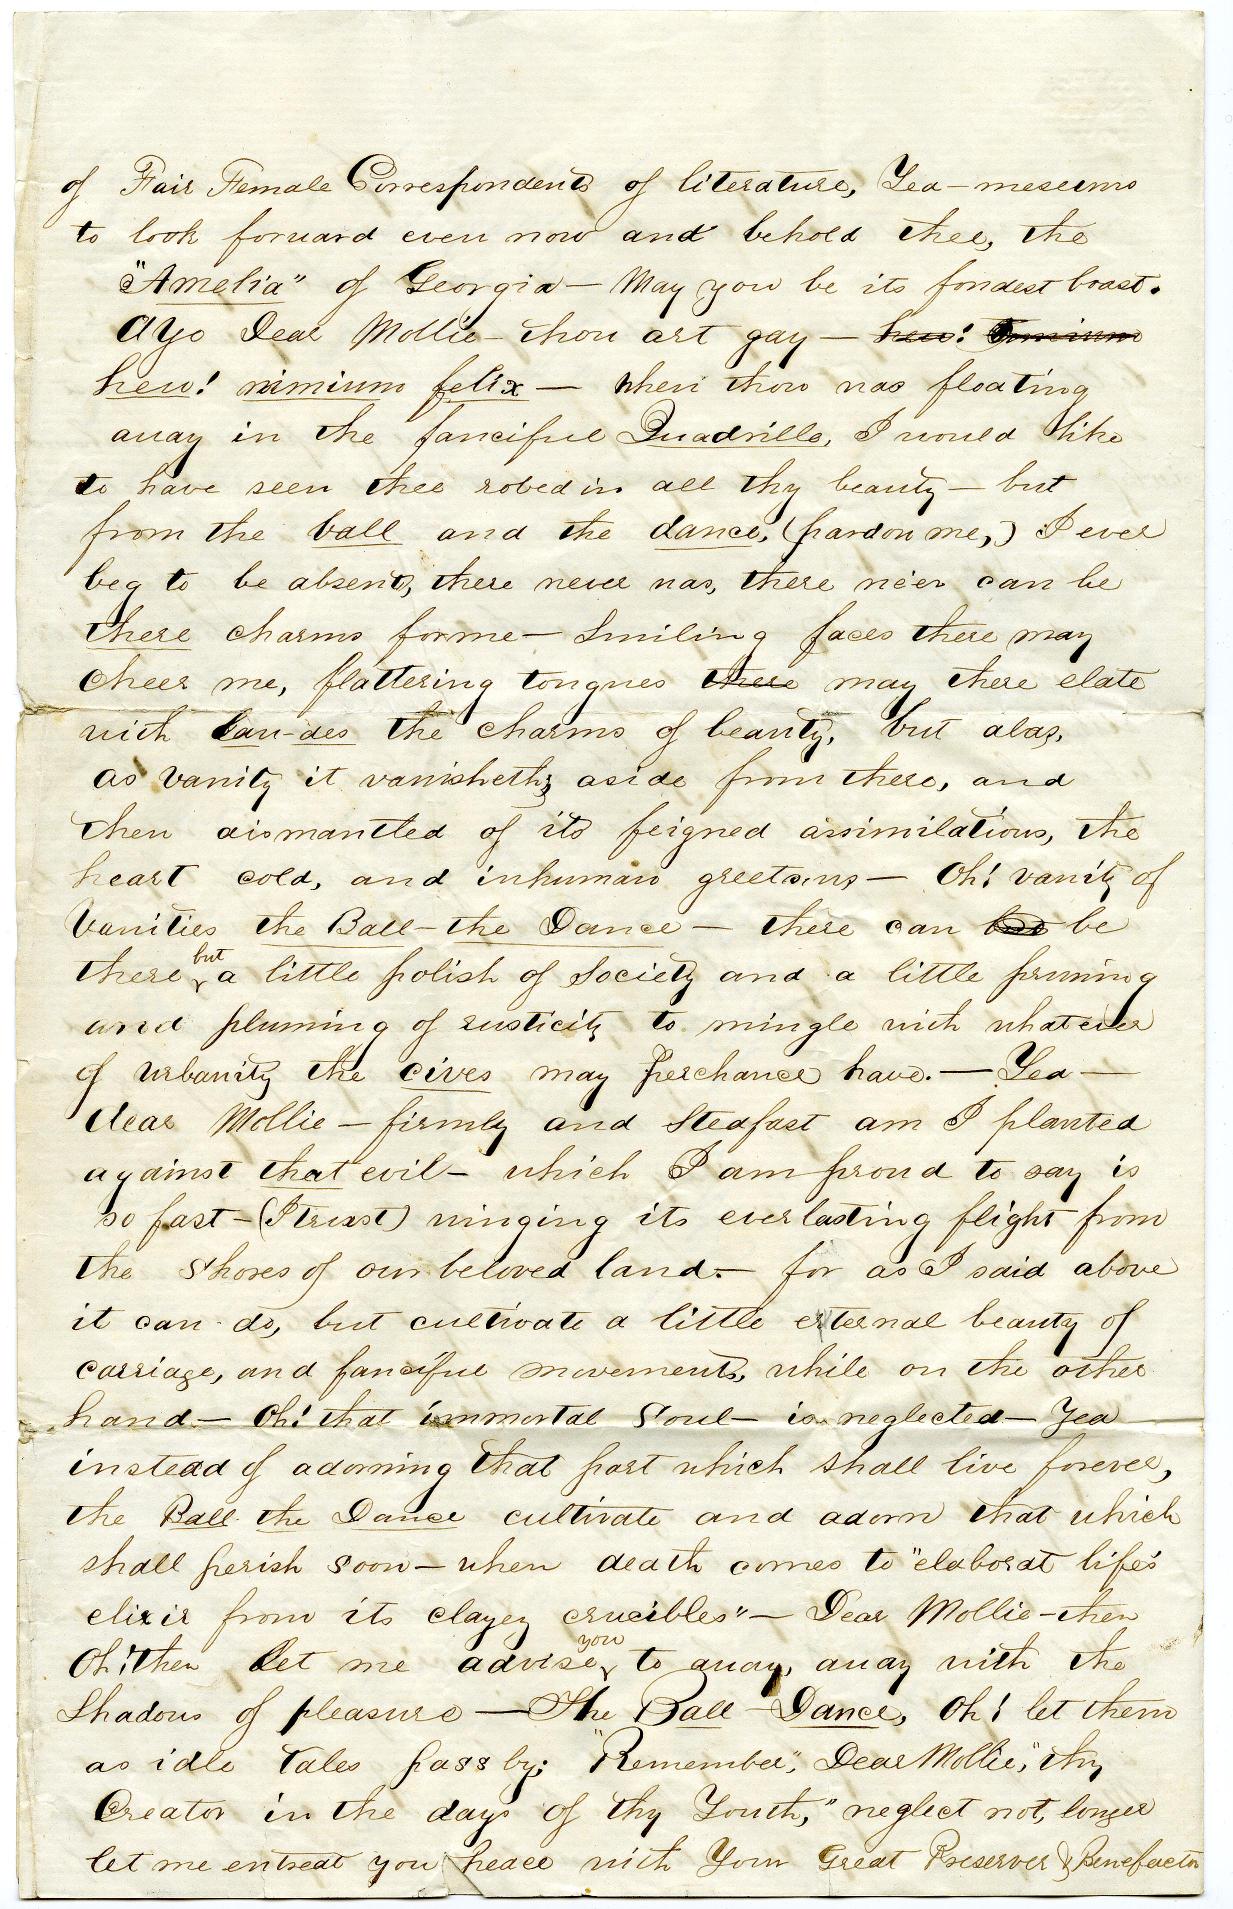 of Fair Female Correspondents of literature, Yea - meseems
to look forward even now and behold thee, the
"Amelia" of Georgia - May you be its fondest boast.
Aye Dear Mollie - thou art gay - heu!
heu! nimium felix - when thou was floating
away in the fanciful Quadrille, I would like
to have seen thee robed in all thy beauty - but
from the ball and the dance, (pardon me,) I ever
beg to be absent, there never was, there ne'er can be
there charms for me - Smiling faces there may
cheer me, flattering tongues there may there elate
with lau-des the charms of beauty, but alas,
as vanity it vanisheth, aside from there, and
then dismantled of its feigned assimilations, the
heart cold, and inhuman greets us - Oh! vanity of
Vanities the Ball - the Dance - there can but be
there but a little polish of Society and a little pruning
and pluming of rusticity to mingle with whatever
of urbanity the cives may perchance have. - Yea -
dear Mollie - firmly and Stedfast am I planted
against that evil - which I am proud to say is
so fast - (I trust) winging its everlasting flight from
the shores of our beloved land. - for as I said above
it can do, but cultivate a little external beauty of
carriage, and fanciful movements, while on the other
hand - Oh! that immortal Soul - is neglected - Yea
instead of adorning that part which shall live forever,
the Ball the Dance cultivate and adorn that which
shall perish soon - when death comes to "elaborat life's
elixir from its clayey crucibles" - Dear Mollie - then
Oh! then Let me advise you to away, away with the
Shadows of pleasure - The Ball - Dance, Oh! let them
as idle tales pass by; "Remember," Dear Mollie, "thy
Creator in the days of thy Youth," neglect not, longer
let me entreat you peace with Your Great Preserver & Benefactor